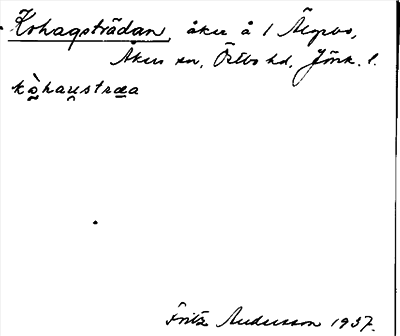 Kohagsträdan, åker å 1 Älgbo,
Åkers sn, Östbo hd, Jönk. l.
kò̤hau̯stræa
Fritz Andersson 1937.